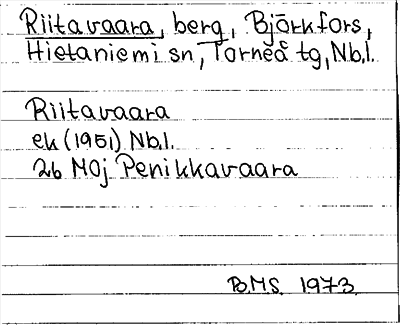 Riitavaara, berg, Björkfors,
Hietaniemi sn, Torneå tg, Nb.l.
Riitavaara
ek (1951) Nb.l.
26 M0j Penikkavaara
B.M.S. 1973